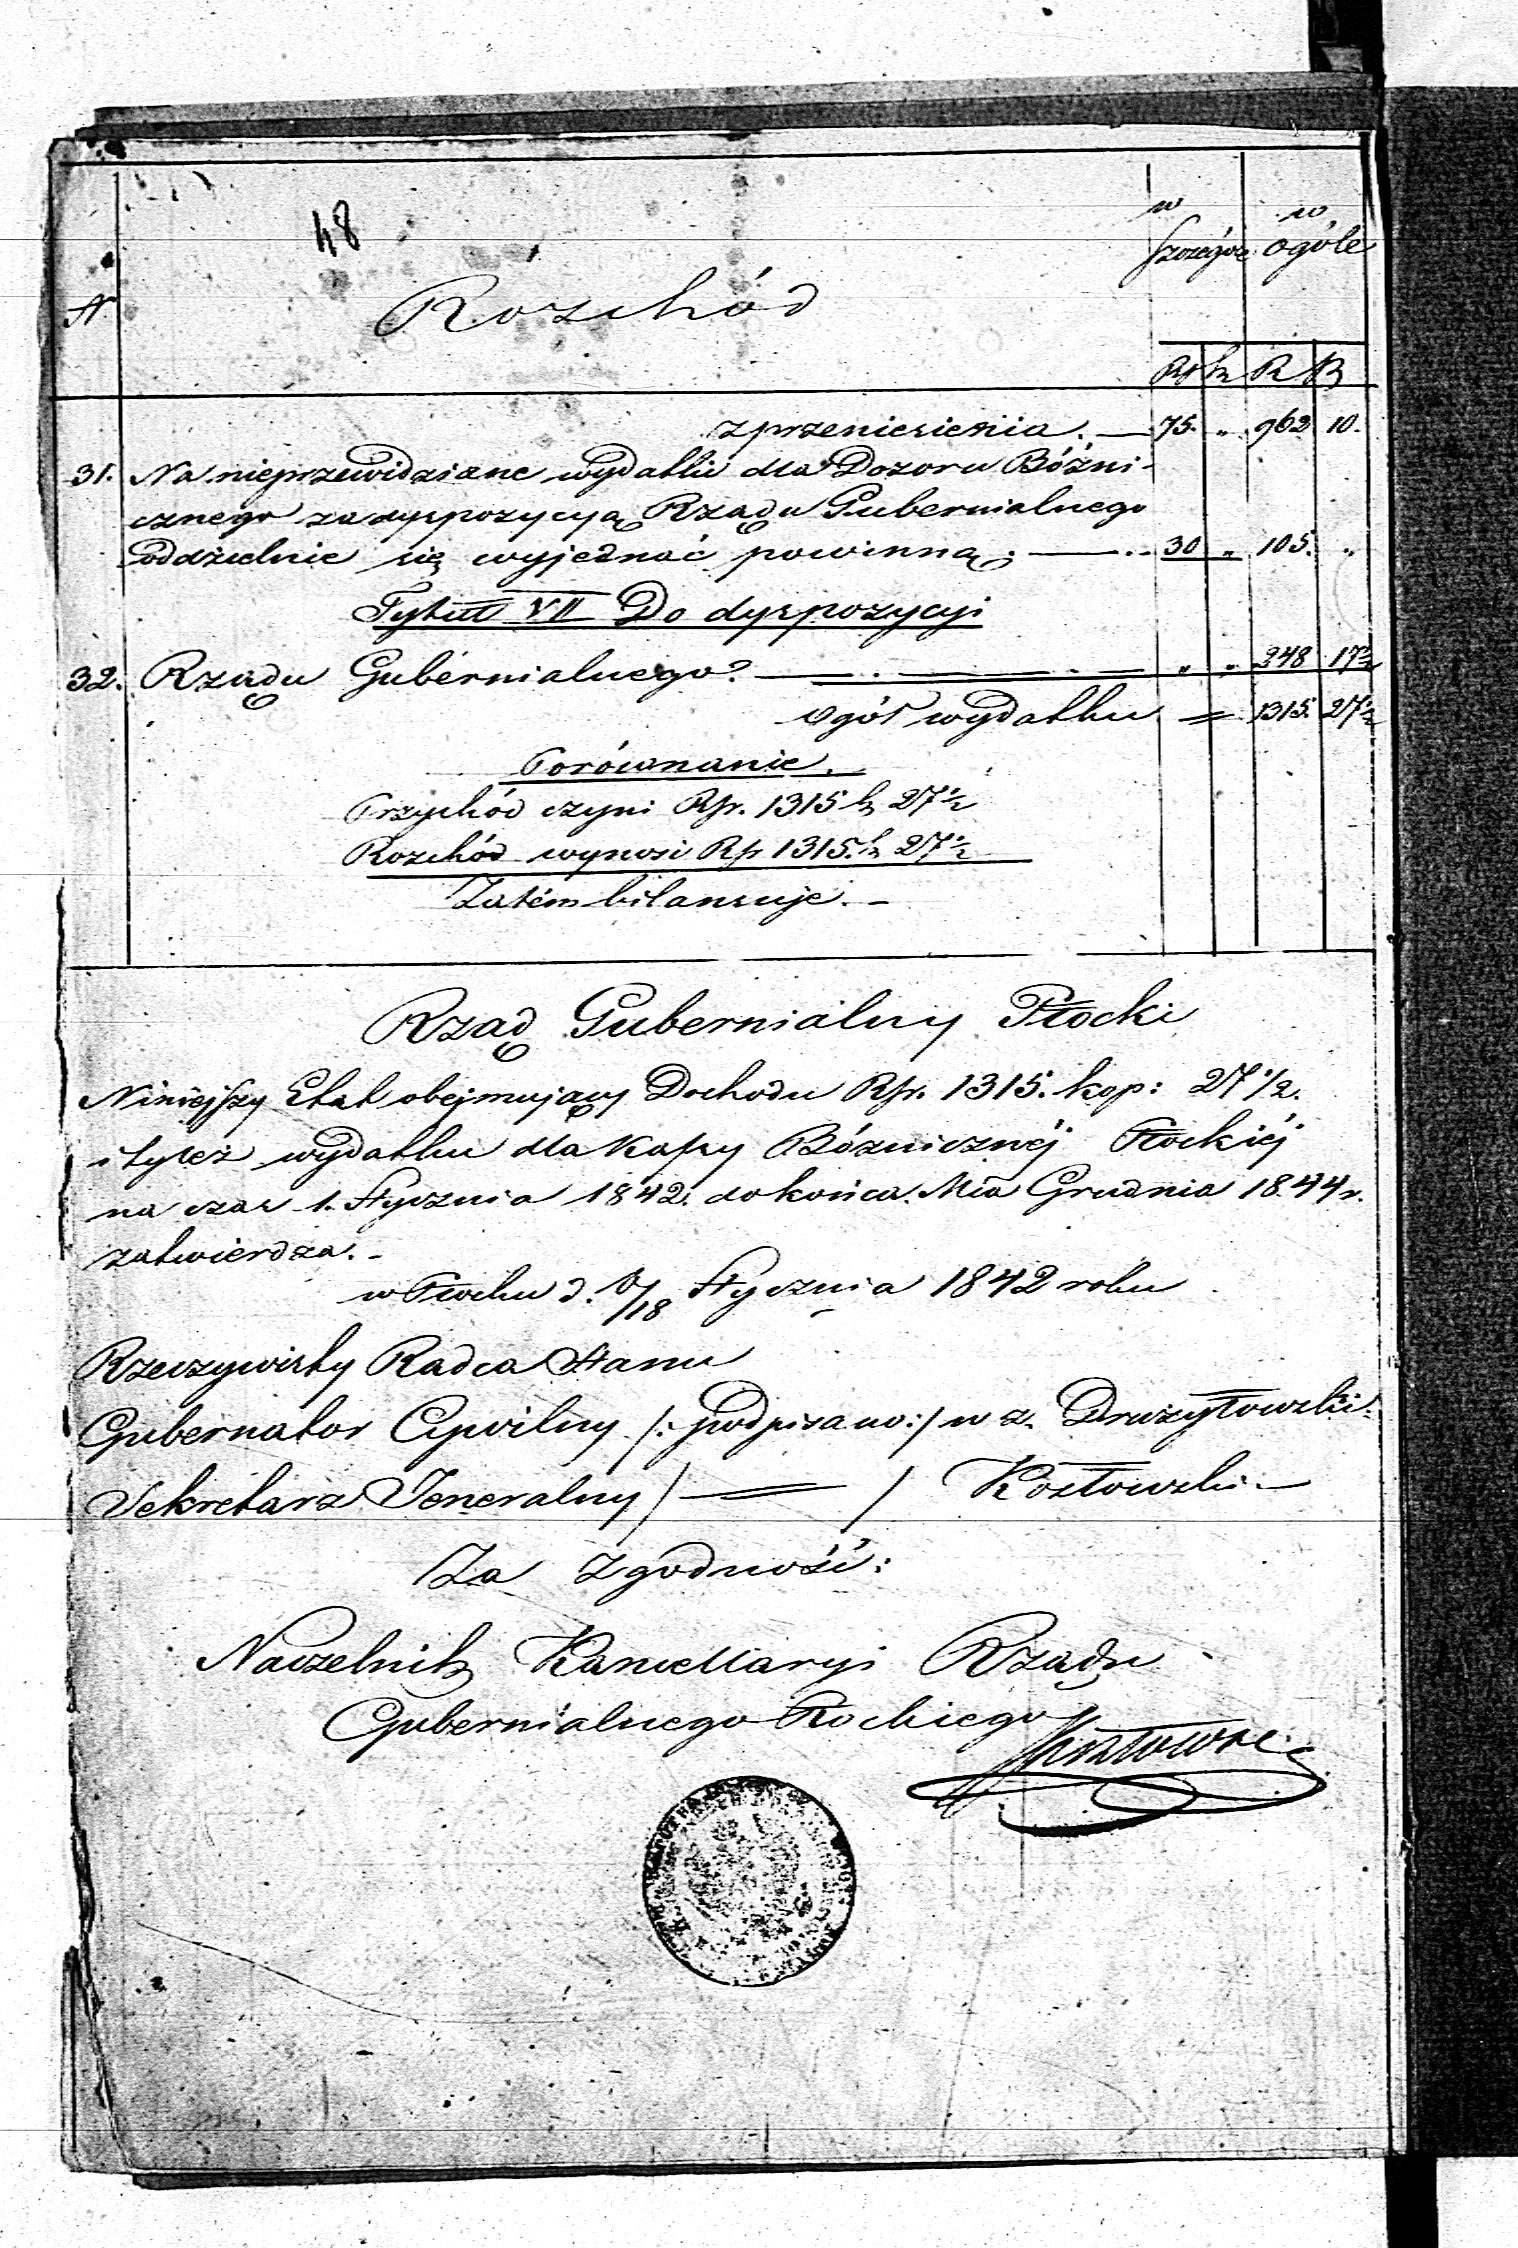 48
w w
Szczególe ogóle
N Rozchód
Rsr k R k
z przeniesienia. — 75. „ 962 10.
31. Na nieprzewidziane wydatki dla Dozoru Bóżni-
cznego za dyspozycyą Rządu Gubernialnego
oddzielnie się wyjednać powinną. — 30 „ 105. „
Tytuł VII Do dyspozycyi
32. Rządu Gubernialnego. — „ „ 248 17½
Ogół wydatku = 1315. 27½
Porównanie.
Przychód czyni Rsr. 1315 k 27½
Rozchód wynosi Rsr 1315. k 27½
Zatém bilansuje. -
Rząd Gubernialny Płocki
Niniejszy Etat obejmujący Dochodu Rsr. 1315. kop: 27 1/2.
i tyleż wydatku dla Kassy Bóżnicznéj Płockiéj
na czas 1. Stycznia 1842. do końca Mca Grudnia 1844 r.
zatwierdza. -
w Płocku d. 6/18 Stycznia 1842 roku
Rzeczywisty Radca Stanu
Gubernator Cywilny /: podpisano :/ w z. Drużyłowski.
Sekretarz Jeneralny / = / Kozłowski. —
Za Zgodność:
Naczelnik Kancellaryi Rządu
Gubernialnego Płockiego